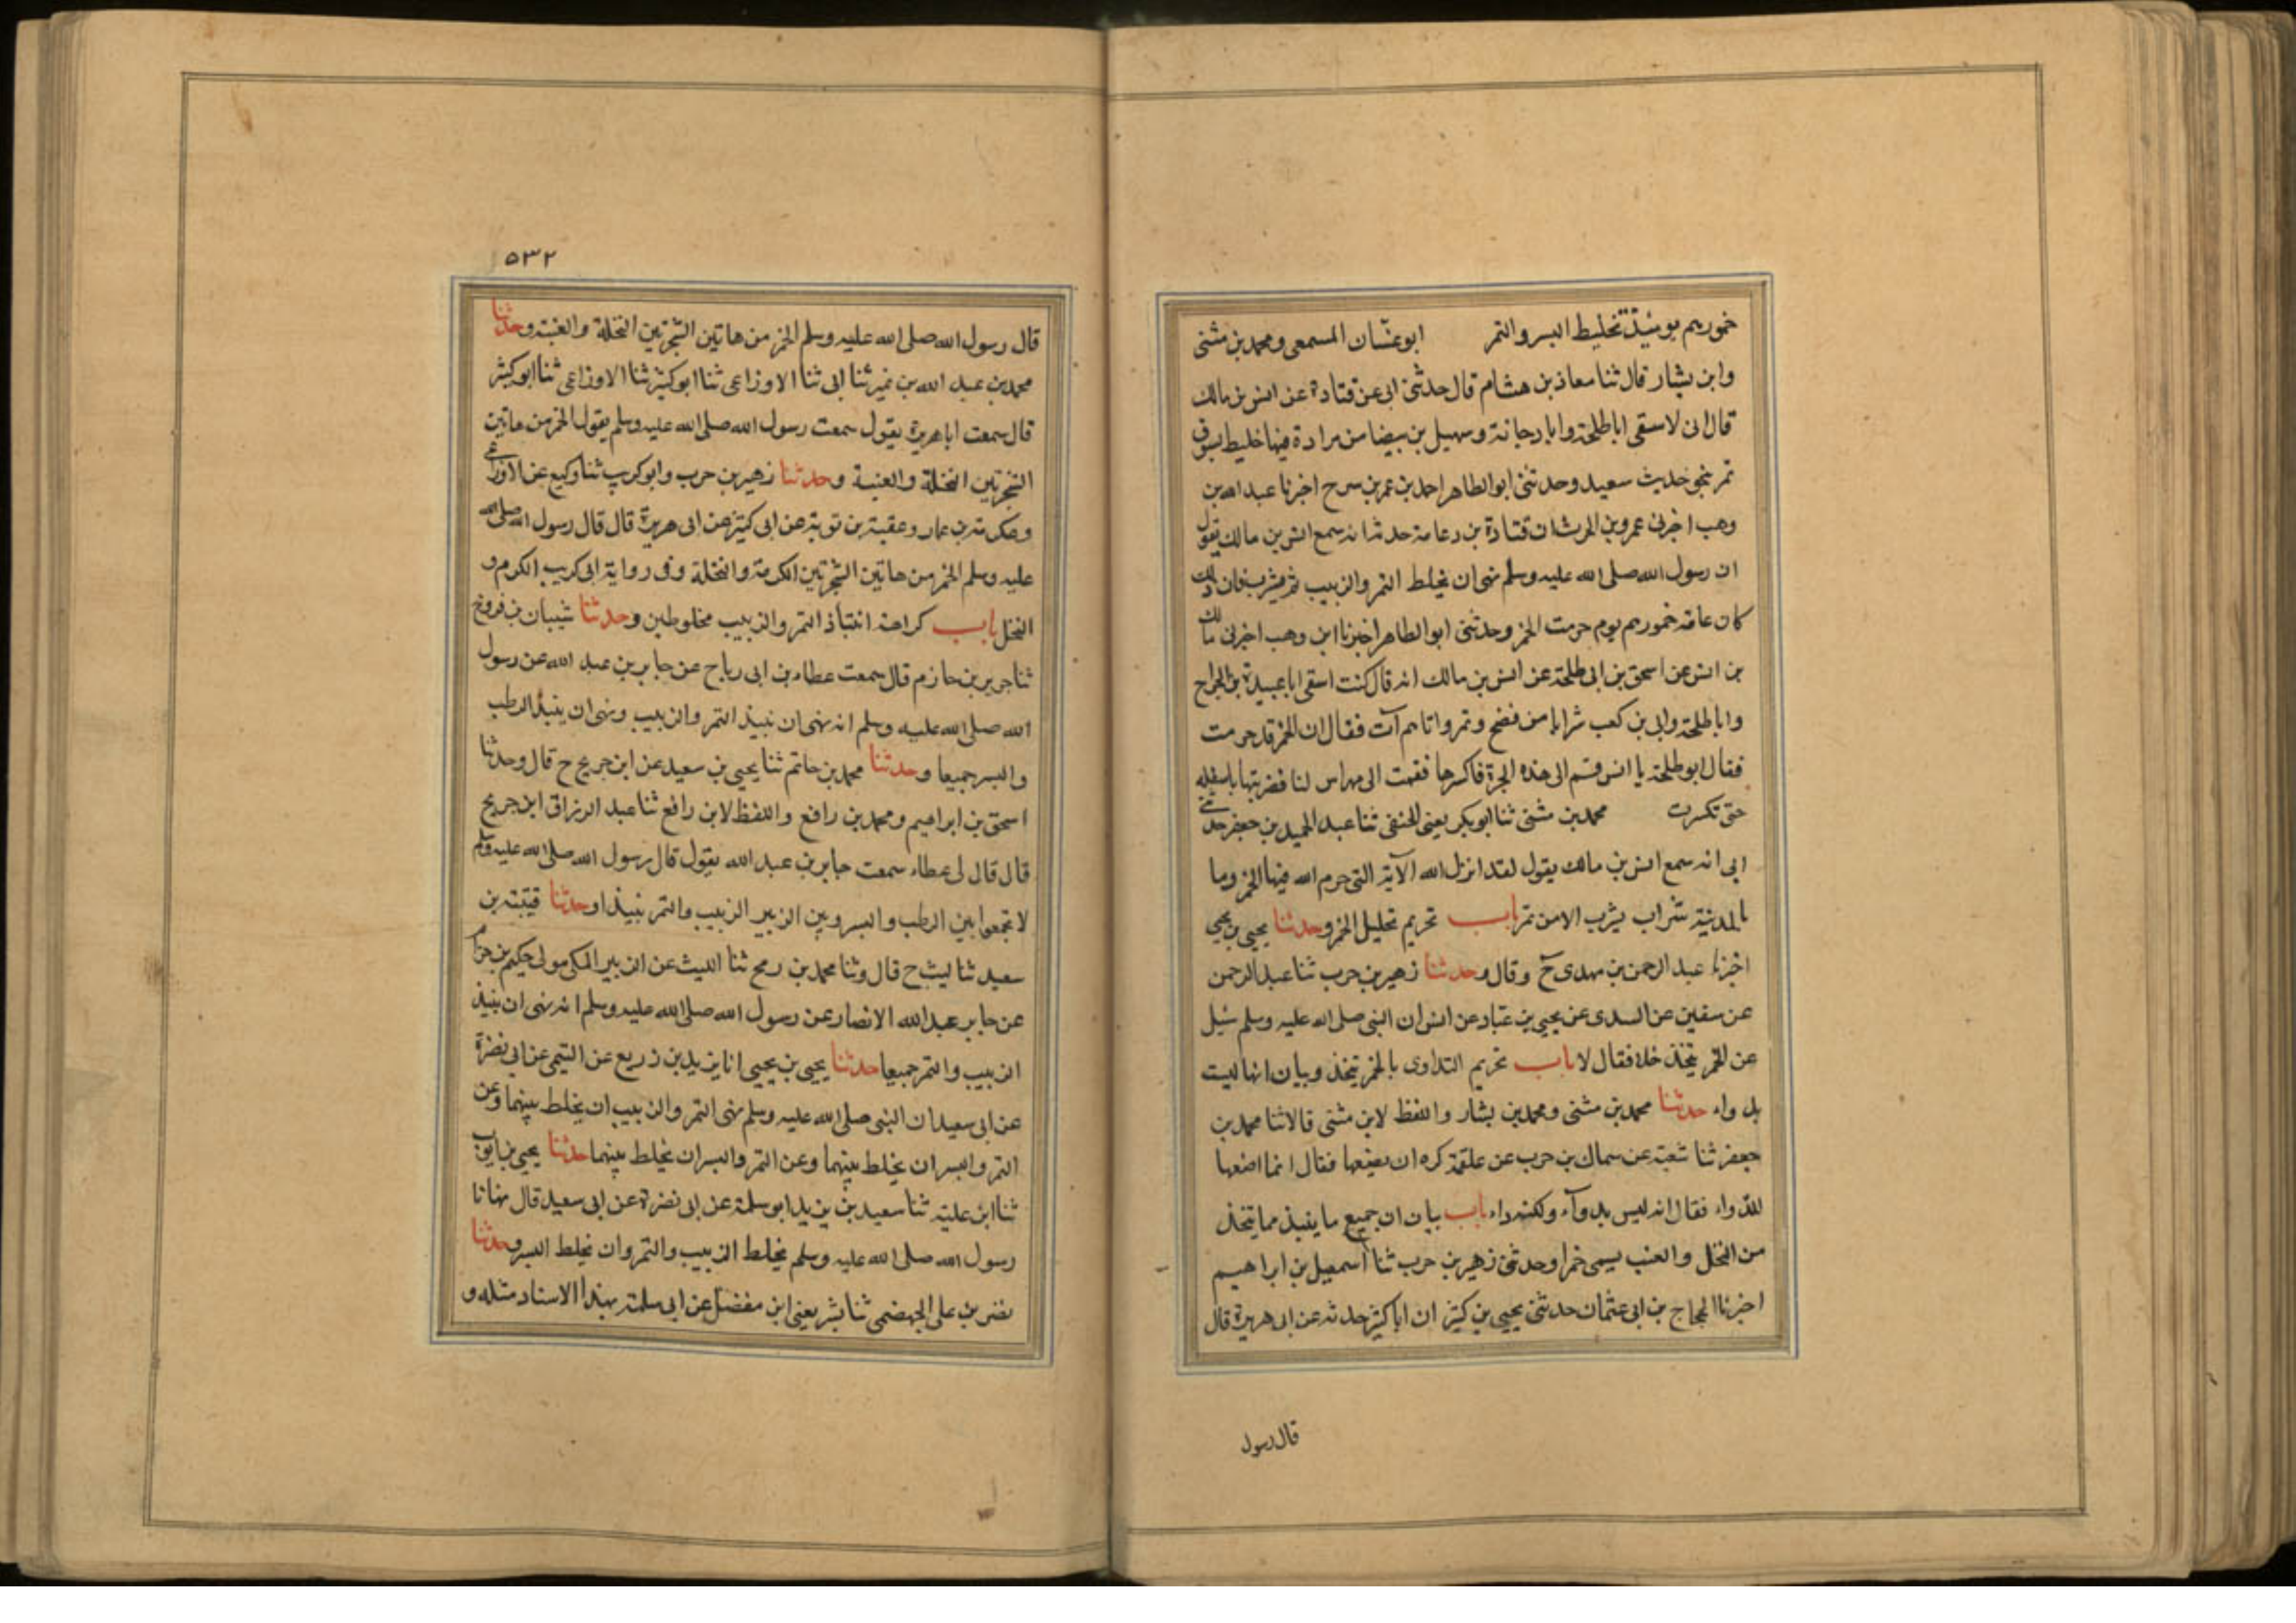 خمورهم يومئذ تخليط البسر والتمر ابو غسان المسمعى ومحمد بن مثنى
وابن بشار قال ثنا معاذ بن هشام قال حدثنى ابى عن قتادة عن انس بن مالك
قال انى لاسقى اباطلحة وابا دجانة وسهيل بن بيضا من مرادة فيها خليط بسر و
تمر بنحو حديث سعيد وحدثنى ابو الطاهر احمد بن عمر بن سرح اخبرنا عبد الله بن
وهب اخبرنى عمرو بن الحرث ان قتادة بن دعامة حدثه انه سمع انس بن مالك يقول
ان رسول الله صلى الله عليه وسلم نهى ان يخلط التمر والزبيب ثم يشرب فان ذلك
كان عامة خمورهم يوم حرمت الخمر وحدثنى ابو الطاهر اخبرنا ابن وهب اخبرنى مالك
بن انس عن اسحق بن ابى طلحة عن انس بن مالك انه قال كنت اسقى ابا عبيدة بن الجراح
واباطلحة وابى بن كعب شرابا من فضح وتمر واتاهم آت فقال ان الخمر قد حرمت
فقال ابو طلحة يا انس قم الى هذه الجرة فاكسرها فقمت الى مهراس لنا فضربتها باسفله
حتى تكسرت محمد بن مثنى ثنا ابو بكر يعنى الحنفى ثنا عبد الحميد بن جعفر حدثنى
ابى انه سمع انس بن مالك يقول لقد انزل الله الآية التى حرم الله فيها الخمر وما
بالمدينة شراب يشرب الا من تمر باب تحريم تحليل الخمر وحدثنا يحيى بن يحيى
اخبرنا عبد الرحمن بن مهدى ح وقال وحدثنا زهير بن حرب ثنا عبد الرحمن
عن سفين عن السدى عن يحيى بن عباد عن انس ان النبى صلى الله عليه وسلم سئل
عن الخمر يتخذ خلا فقال لا باب تحريم التداوى بالخمر يتخذ وبيان انها ليست
بدواء حدثنا محمد بن مثنى ومحمد بن بشار واللفظ لابن مثنى قالا ثنا محمد بن
جعفر ثنا شعبة عن سماك بن حرب عن علقمة كره ان يصنعها فقال انما اصنعها
للدواء فقال انه ليس بدوآء ولكنه داء باب بيان ان جميع ما ينبذ مما يتخذ
من النخل والعنب يسمى خمرا وحدثنى زهير بن حرب ثنا اسمعيل بن ابراهيم
اخبرنا الحجاج بن ابى عثمان حدثنى يحيى بن كثير ان ابا كثير حدثه عن ابى هريرة قال
قال رسول
٥٣٢
قال رسول الله صلى الله عليه وسلم الخمر من هاتين الشجرتين النخلة والعنبة وحدثنا
محمد بن عبد الله بن نمير ثنا ابى ثنا الاوزاعى ثنا ابو كثير ثنا الاوزاعى ثنا ابو كثير
قال سمعت ابا هريرة يقول سمعت رسول الله صلى الله عليه وسلم يقول الخمر من هاتين
الشجرتين النخلة والعنبة وحدثنا زهير بن حرب وابو كريب ثنا وكيع عن الاوزاعى
وعكرمة بن عمار وعقبة بن توبة عن ابى كثير عن ابى هريرة قال قال رسول الله صلى الله
عليه وسلم الخمر من هاتين الشجرتين الكرمة والنخلة وفى رواية ابى كريب الكرم و
النخل باب كراهة انتباذ التمر والزبيب مخلوطين وحدثنا شيبان بن فروخ
ثنا جرير بن حازم قال سمعت عطاء بن ابى رباح عن جابر بن عبد الله عن رسول
الله صلى الله عليه وسلم انه نهى ان نبيذ التمر والزبيب ونهى ان ينبذ الرطب
والبسر جميعا وحدثنا محمد بن حاتم ثنا يحيى بن سعيد عن ابن جريج ح قال وحدثنا
اسحق بن ابراهيم ومحمد بن رافع واللفظ لابن رافع ثنا عبد الرزاق ابن جريج
قال قال لى عطاء سمعت جابر بن عبد الله يقول قال رسول الله صلى الله عليه وسلم
لا تجمعوا بين الرطب والبسر وبين الزبير الزبيب والتمر نبيذا وحدثنا قتيبة بن
سعيد ثنا ليث ح قال وثنا محمد بن رمح ثنا الليث عن الزبير المكى مولى حكيم بن حزام
عن جابر عبد الله الانصار عن رسول الله صلى الله عليه وسلم انه نهى ان ينبذ
الزبيب والتمر جميعا حدثنا يحيى بن يحيى انا يزيد بن زريع عن التيمى عن ابى نضرة
عن ابى سعيد ان النبى صلى الله عليه وسلم نهى التمر والزبيب ان يخلط بينهما وعن
التمر والبسر ان يخلط بينهما وعن التمر والبسر ان يخلط بينهما حدثنا يحيى بن ايوب
ثنا ابن علية ثنا سعيد بن يزيد ابو سلمة عن ابى نضرة عن ابى سعيد قال نهانا
رسول الله صلى الله عليه وسلم يخلط الزبيب والتمر وان نخلط البسر وحدثنا
نضر بن على الجهضمى ثنا بشر يعنى ابن مفضل عن ابى سلمة بهذا الاسناد مثله و